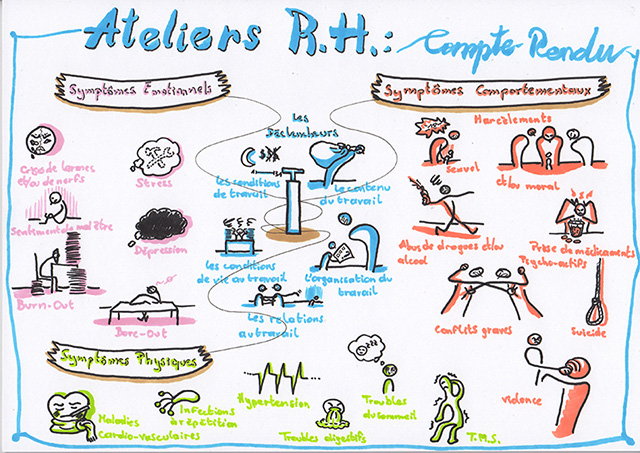 Ateliers R.H.: Compte Rendu
Symptômes Émotionnels
Crise de larmes
et/ou de nerfs
Stress
Sentiment de mal être
Dépression
Burn-Out
Bore-Out
Les
Déclencheurs
Les conditions
de travail
Le contenu
du travail
Les conditions
de vie au travail
L'organisation du
travail
Les relations
au travail
Symptômes Comportementaux
Harcèlements
sexuel
et/ou moral
Abus de drogues et/ou
alcool
Prise de médicaments
Psycho-actifs
Conflits graves
Suicide
violence
Symptômes Physiques
Maladies
cardio-vasculaires
Infections
à répétition
Hypertension
Troubles digestifs
zzz
Troubles
du sommeil
T.M.S.